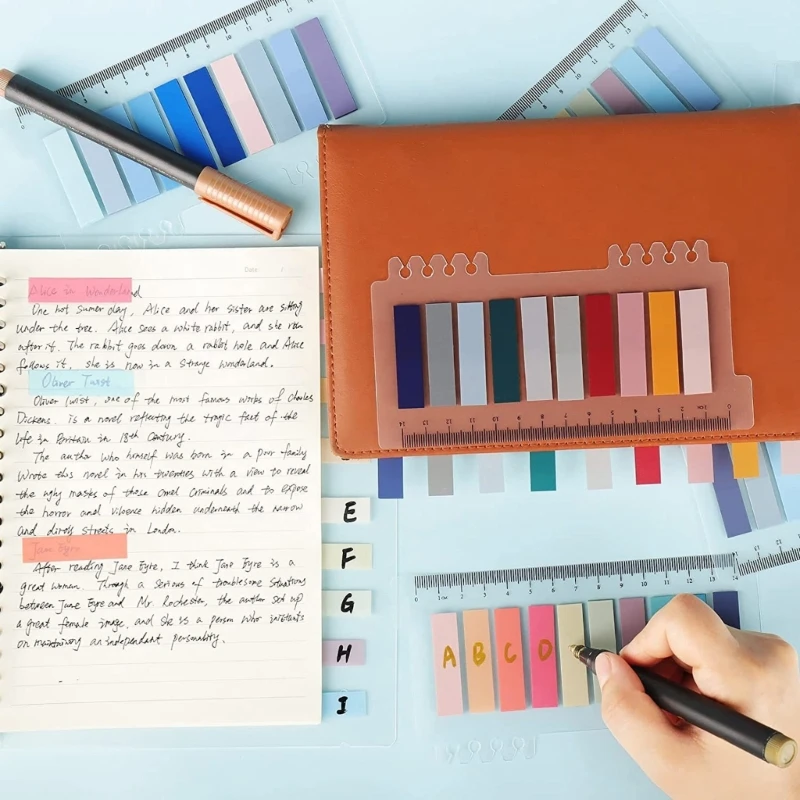 Date /
Alice in Wonderland
One hot sumer day, Alice and her sister are sitting
under the tree. Alice sees a white rabbit, and she run
after it. The rabbit goes down a rabbit hole and Alice
follows it, she is now in a strange wonderland.
Oliver Twist
Oliver Twist, one of the most famous works of Charles
Dickens. Is a novel reflecting the tragic fact of the
life in Britain in 18th Century.
The author who himself was born in a poor family
Wrote this novel in his twenties with a view to reveal
the ugly masks of those cruel criminals and to expose
the horror and violence hidden underneath the narrow
and streets in London.
Jane Eyre
After reading Jane Eyre, I think Jane Eyre is a
great woman. Through a serious of troublesome situations
between Jane Eyre and Mr Rochester, the author set up
a great female image, and she is a person who
on maintaining an independant personality.
E
F
G
H
I
14 13 12 11 10 9 8 7 6 5 4 3 2 1cm 0
0 1cm 2 3 4 5 6 7 8 9 10 11 12 13 14
A B C D